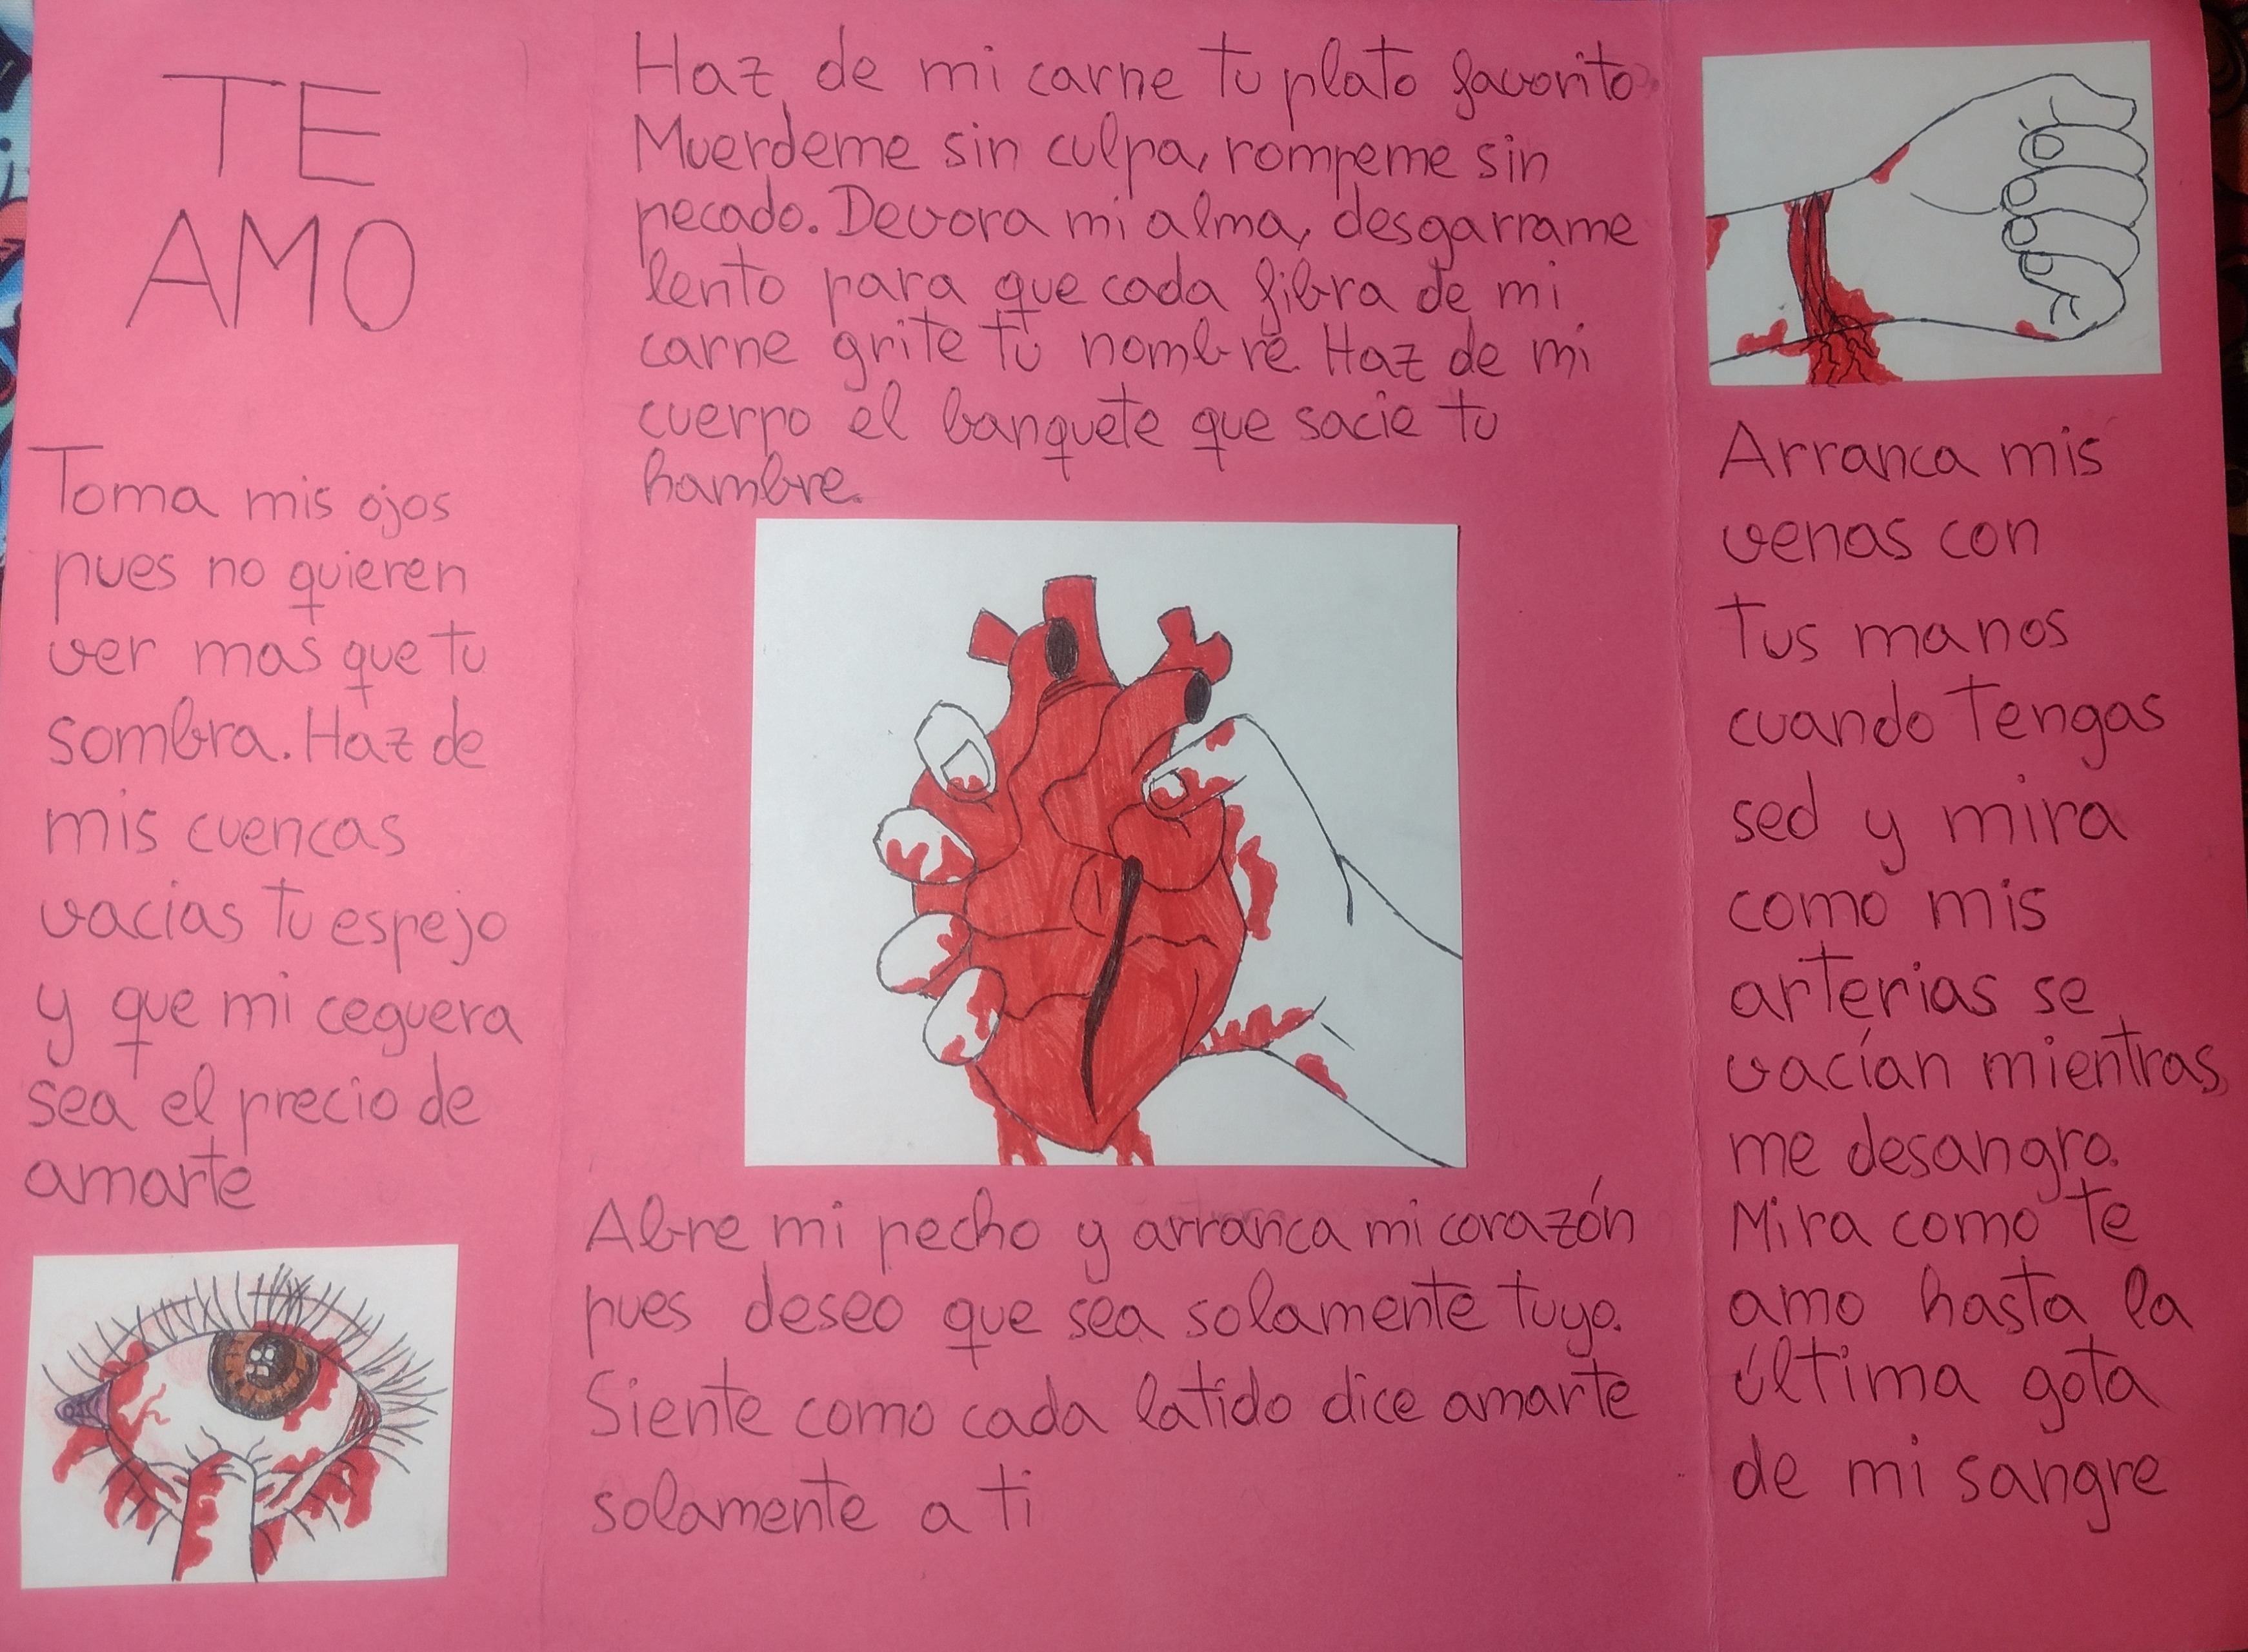 TE
AMO
Toma mis ojos
pues no quieren
ver mas que tu
sombra. Haz de
mis cuencas
vacias tu espejo
y que mi ceguera
sea el precio de
amarte
Haz de mi carne tu plato favorito.
Muerdeme sin culpa, rompeme sin
pecado. Devora mi alma, desgarrame
lento para que cada fibra de mi
carne grite tu nombre. Haz de mi
cuerpo el banquete que sacie tu
hambre.
Abre mi pecho y arranca mi corazón
pues deseo que sea solamente tuyo.
Siente como cada latido dice amarte
solamente a ti
Arranca mis
venas con
tus manos
cuando tengas
sed y mira
como mis
arterias se
vacían mientras
me desangro.
Mira como te
amo hasta la
última gota
de mi sangre